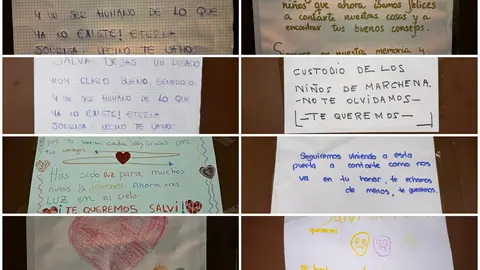 Y UN SER HUMANO DE LO QUE
YA NO EXISTE! ETERNA
SONRISA! VECINO TE VAMOS
niños que ahora íbamos felices
a contarte nuestras cosas y a
encontrar tus buenos consejos.
Siempre en nuestra memoria y
SALVA DEJAS UN LEGADO
MUY CLARO BUENO, GENEROSO
Y UN SER HUMANO DE LO QUE
YA NO EXISTE! ETERNA
SONRISA! VECINO TE VAMOS
CUSTODIO DE LOS
NIÑOS DE MARCHENA.
-NO TE OLVIDAMOS-
-TE QUEREMOS-
por tu
tus consejos
Has sido luz para muchos
niños y Ahora eres
LUZ en el cielo
¡TE QUEREMOS SALVI!
Seguiremos viniendo a esta
puerta a contarte como nos
va en tu honor, te echamos
de menos, te queremos.
queremos